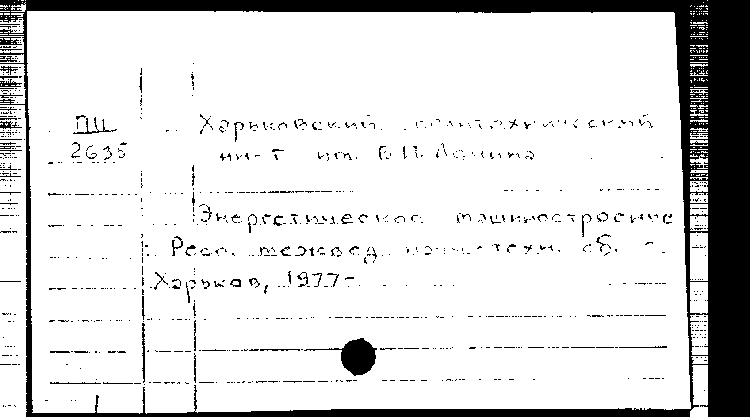 ПЦ
2635
Харьковский политехнический
ин-т им. В.И. Ленина
Энергетическое машиностроение
: Респ. межвед. научн-техн. сб. -
Харьков, 1977-